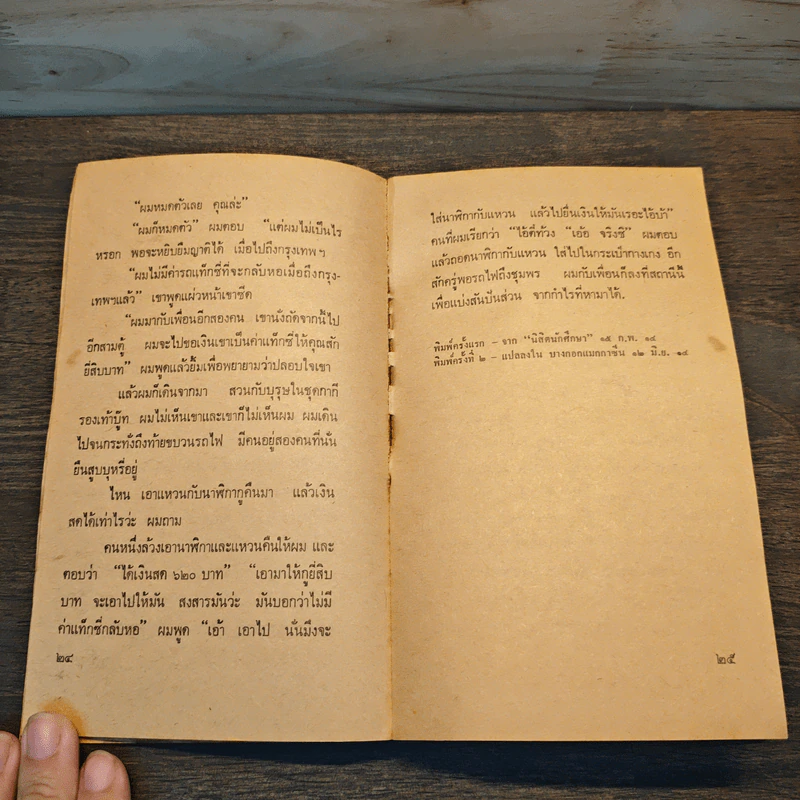 “ผมหมดตัวเลย คุณล่ะ”
“ผมก็หมดตัว” ผมตอบ “แต่ผมไม่เป็นไร
หรอก พอจะหยิบยืมญาติได้ เมื่อไปถึงกรุงเทพฯ
“ผมไม่มีค่ารถแท็กซี่ที่จะกลับหอเมื่อถึงกรุง-
เทพฯแล้ว” เขาพูดแผ่วหน้าเขาซีด
“ผมมากับเพื่อนอีกสองคน เขานั่งถัดจากนี้ไป
อีกสามตู้ ผมจะไปขอเงินเขาเป็นค่าแท็กซี่ให้คุณสัก
ยี่สิบบาท” ผมพูดแล้วยิ้มเพื่อพยายามว่าปลอบใจเขา
แล้วผมก็เดินจากมา สวนกับบุรุษในชุดกากี
รองเท้าบู๊ท ผมไม่เห็นเขาและเขาก็ไม่เห็นผม ผมเดิน
ไปจนกระทั่งถึงท้ายขบวนรถไฟ มีคนอยู่สองคนที่นั่น
ยืนสูบบุหรี่อยู่
ไหน เอาแหวนกับนาฬิกากูคืนมา แล้วเงิน
สดได้เท่าไรวะ ผมถาม
คนหนึ่งล้วงเอานาฬิกาและแหวนคืนให้ผม และ
ตอบว่า “ได้เงินสด ๖๒๐ บาท” “เอามาให้กูยี่สิบ
บาท จะเอาไปให้มัน สงสารมันว่ะ มันบอกว่าไม่มี
ค่าแท็กซี่กลับหอ” ผมพูด “เอ้า เอาไป นั่นมึงจะ
๒๔
ใส่นาฬิกากับแหวน แล้วไปยื่นเงินให้มันเรอะไอ้บ้า”
คนที่ผมเรียกว่า “ไอ้ตี๋ท้วง “เอ้อ จริงซี” ผมตอบ
แล้วถอดนาฬิกากับแหวน ใส่ไปในกระเป๋ากางเกง อีก
สักครู่พอรถไฟถึงชุมพร ผมกับเพื่อนก็ลงที่สถานีนี้
เพื่อแบ่งสันปันส่วน จากกำไรที่หามาได้.
พิมพ์ครั้งแรก – จาก “นิสิตนักศึกษา” ๑๕ ก.พ. ๑๔
พิมพ์ครั้งที่ ๒ – แปลลงใน บางกอกแมกกาซีน ๑๒ มิ.ย. ๑๔
๒๕